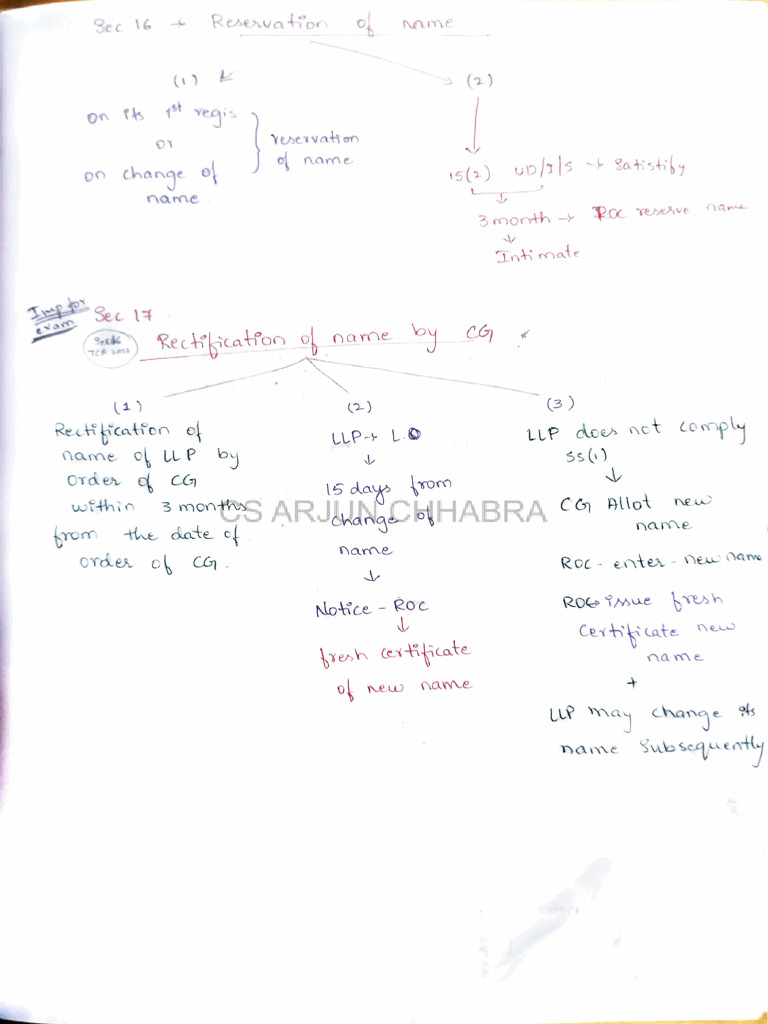 Sec 16 → Reservation of name
(1)
on its 1st regis
or
on change of
name
} reservation
of name
(2)
15(2) UD/I/S → Satistify
↓
3 month → ROC reserve name
↓
Intimate
Imp for
exam
Sec 17
Rectification of name by CG
(1)
Rectification of
name of LLP by
order of CG
within 3 months
from the date of
order of CG.
(2)
LLP → L.O
↓
15 days from
change of
name
↓
Notice - ROC
↓
fresh certificate
of new name
(3)
LLP does not comply
SS(1)
↓
CG Allot new
name
ROC - enter - new name
ROC issue fresh
certificate new
name
+
LLP may change its
name subsequently
CS ARJUN CHHABRA